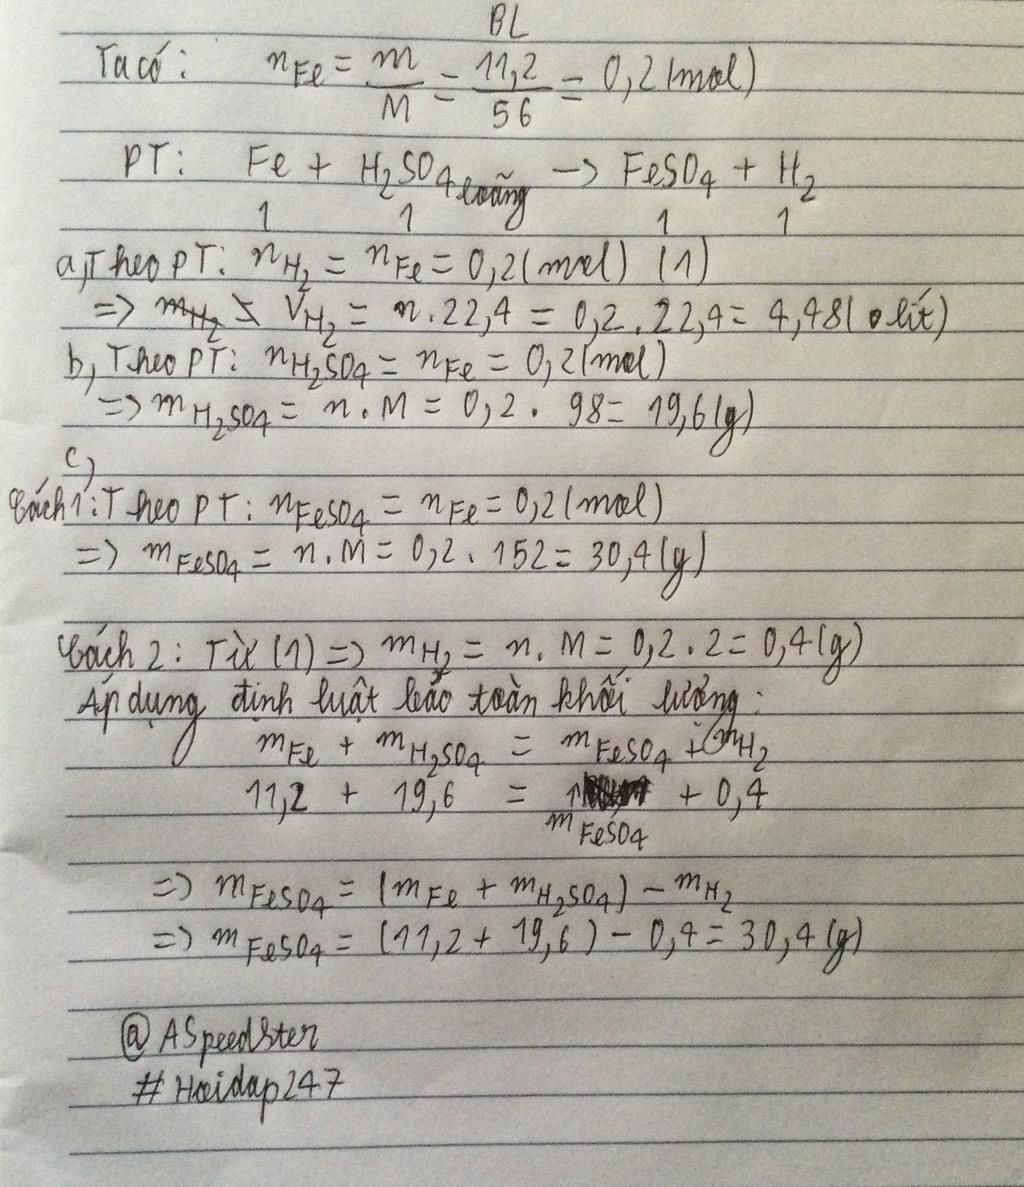 BL
Ta có: nFe = m/M = 11,2/56 = 0,2 (mol)
PT: Fe + H2SO4 loãng -> FeSO4 + H2
1 1 1 1
a, Theo PT: nH2 = nFe = 0,2 (mol) (1)
=> VH2 = n.22,4 = 0,2.22,4 = 4,48 (lít)
b, Theo PT: nH2SO4 = nFe = 0,2 (mol)
=> mH2SO4 = n.M = 0,2.98 = 19,6 (g)
c,
Cách 1: Theo PT: nFeSO4 = nFe = 0,2 (mol)
=> mFeSO4 = n.M = 0,2.152 = 30,4 (g)
Cách 2: Từ (1) => mH2 = n.M = 0,2.2 = 0,4 (g)
Áp dụng định luật bảo toàn khối lượng:
mFe + mH2SO4 = mFeSO4 + mH2
11,2 + 19,6 = mFeSO4 + 0,4
=> mFeSO4 = (mFe + mH2SO4) - mH2
=> mFeSO4 = (11,2 + 19,6) - 0,4 = 30,4 (g)
@ASpeedster
#Hoidap247